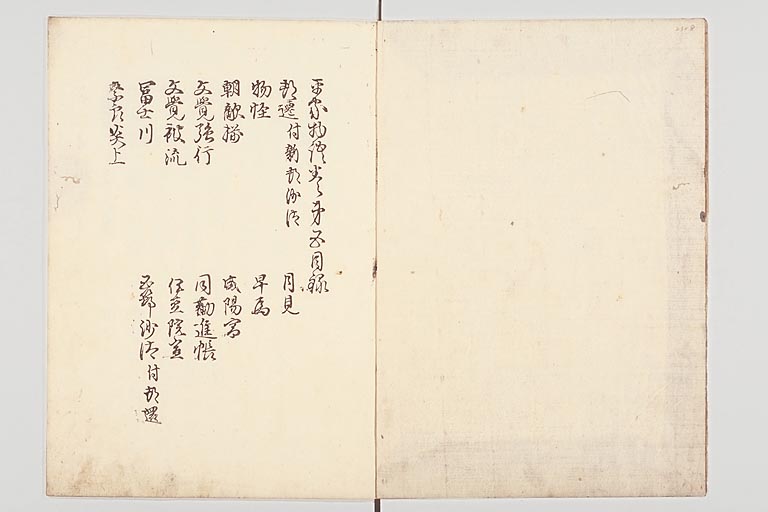 平家物語巻第五目録
都遷付新都沙汰
月見
物怪
早馬
朝敵揃
咸陽宮
文覚強行
同勧進帳
文覚被流
伊豆院宣
冨士川
五節沙汰付都還
奈良炎上